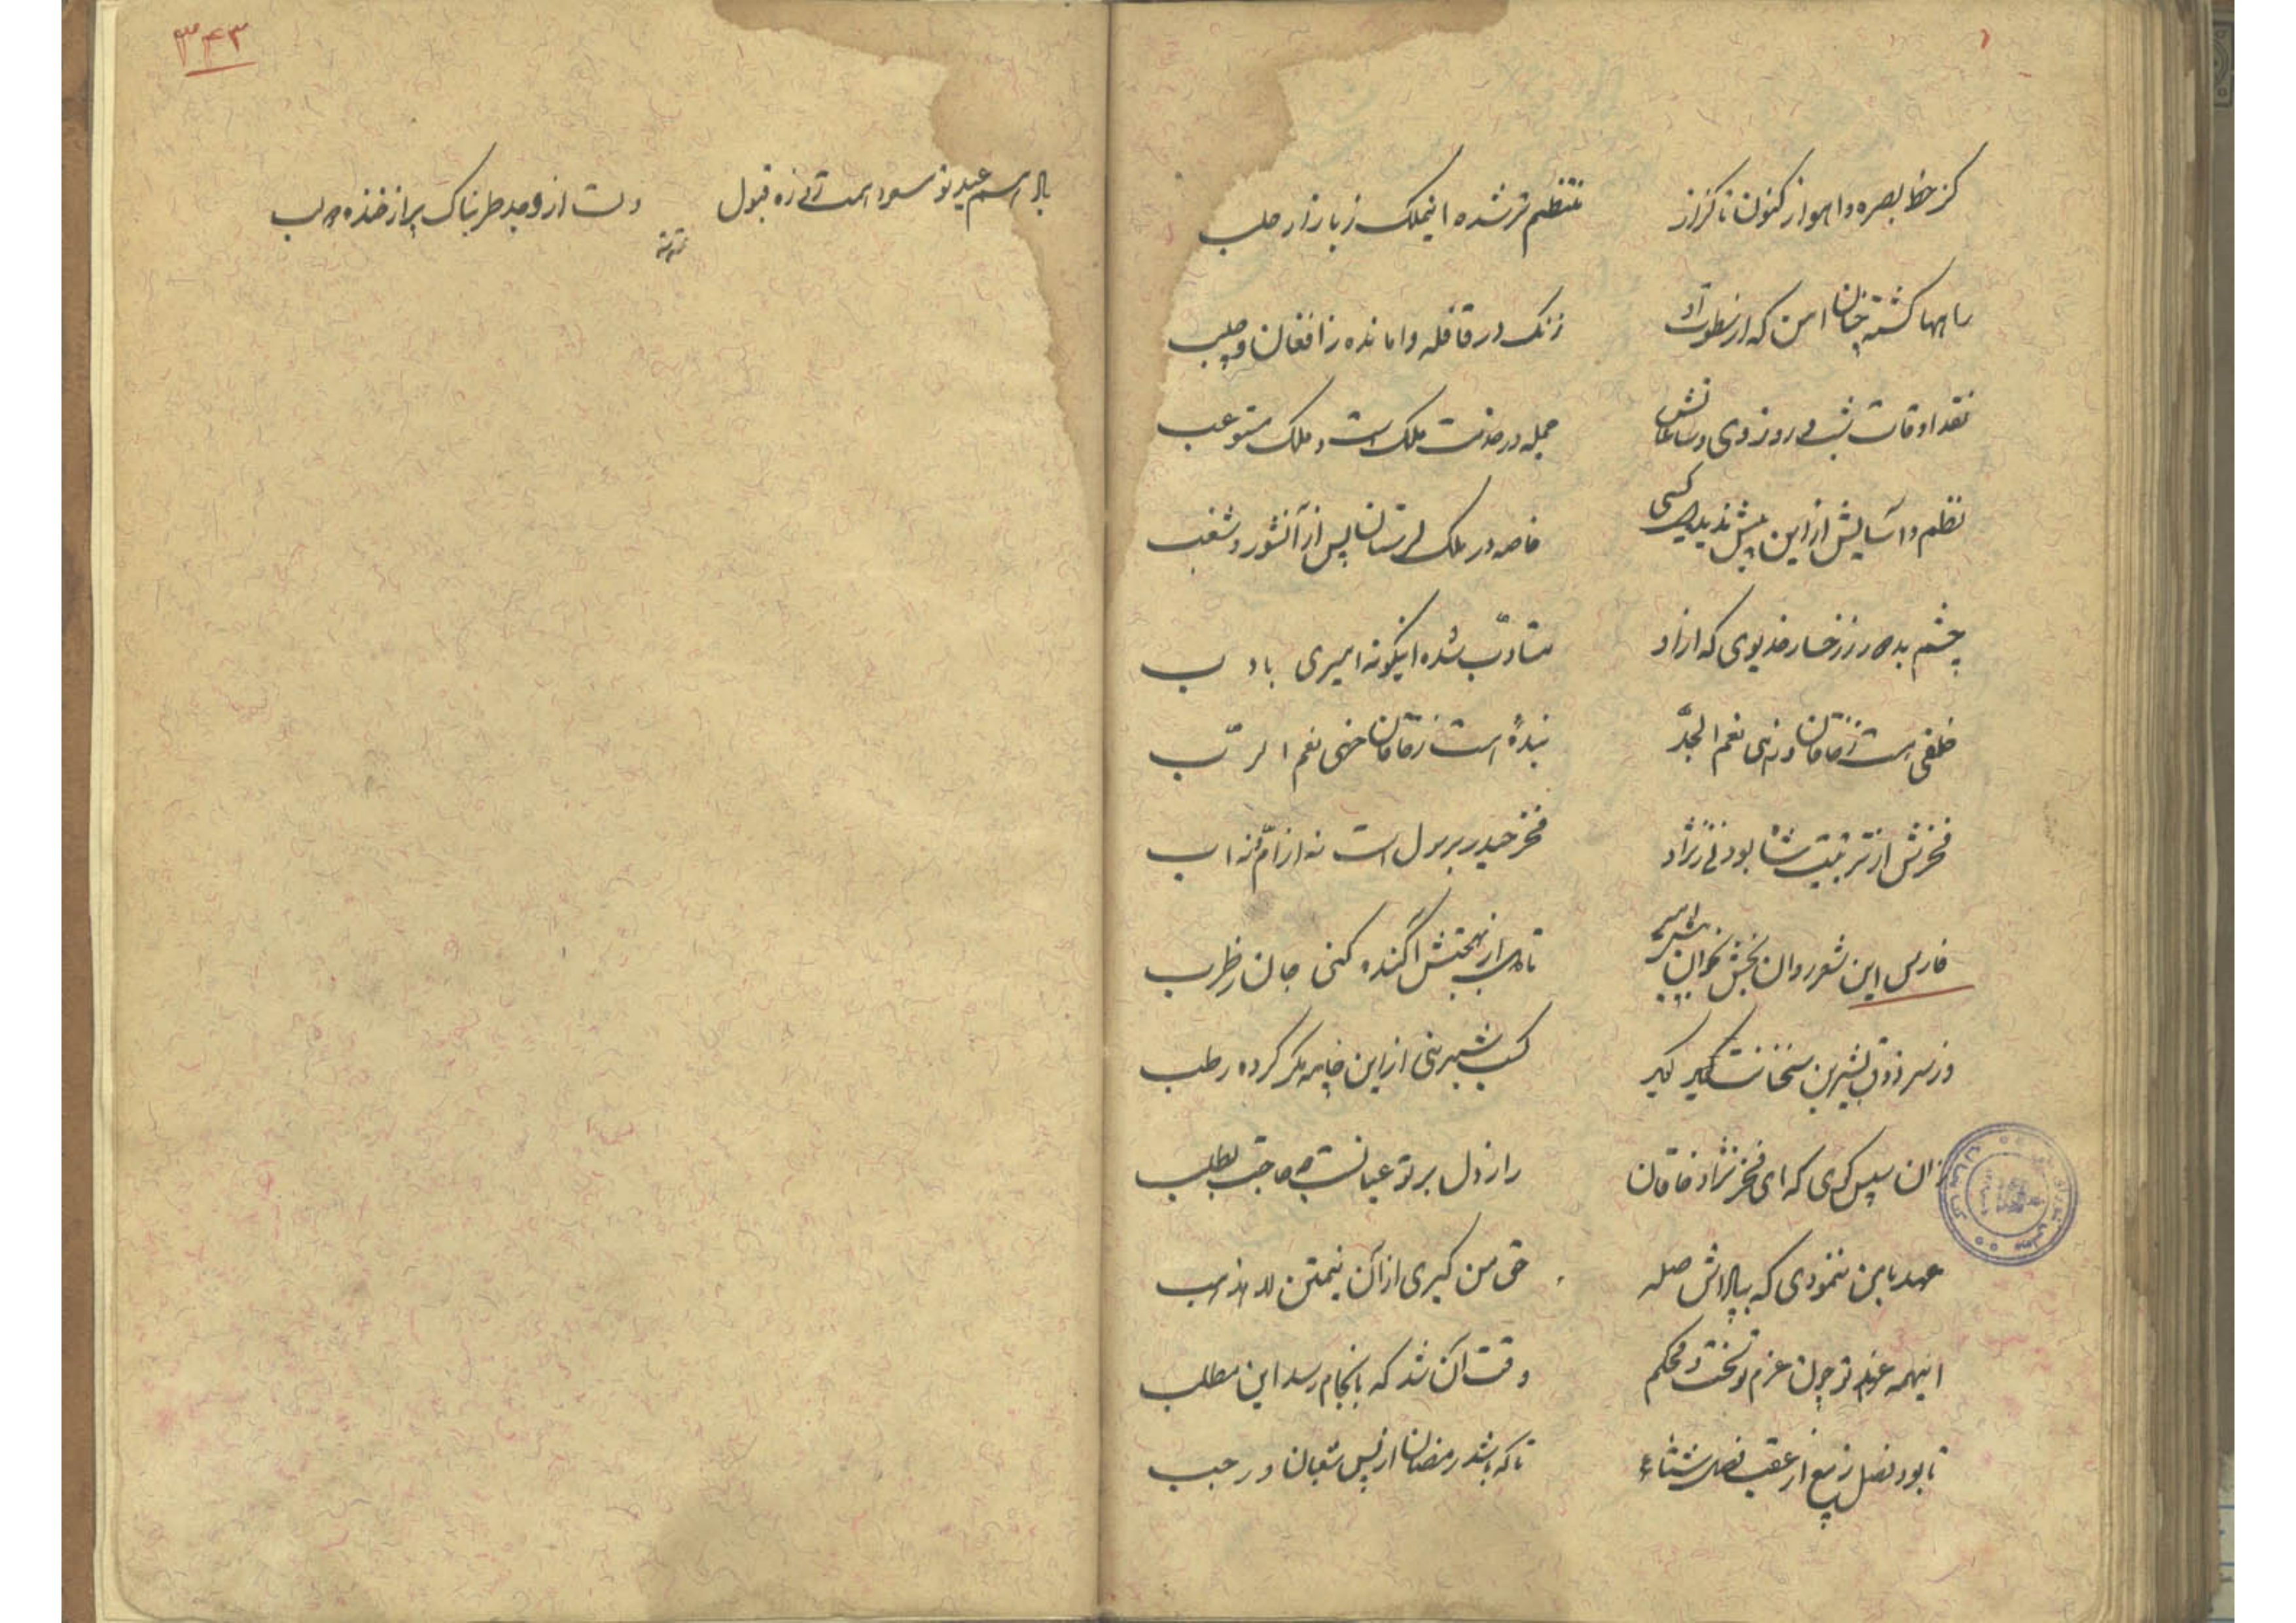 کز خط بصره و اهواز کنون تا کزاز
منتظم تر شده اینملک ز بازار حلب
راهها گشته چنان امن که از سطوت او
زنگ در قافله وامانده ز افغان و جلب
نقد اوقات شب و روز وی و ساعاتش
جمله در خدمت ملک است و ملک مستوعب
نظم و آسایش از این پیش ندیده کسی
خاصه در ملک لرستان پس از آنشور و شغب
چشم بد دور ز رخسار خدیوی که از او
متادّب شده اینگونه امیری بادب
خلفی است ز خاقان و زهی نعم الجدّ
بندهٔ است ز خاقان خهی نعم الربّ
فخرش از تربیت شاه بود نی ز نژاد
فخر حیدر برسول است نه از امّ و نه اب
فارس این شعر روان بخش بخوان پیش امیر
تا دل از بهجتش آکنده کنی جان ز طرب
وز سر ذوق بشیرین سخنانت گیر
کسب شیرینی از این خامه مگر کرده رطب
زان سپس گوی که ای فخر نژاد خاقان
راز دل بر تو عیانست چه حاجت بطلب
عهد با من بنمودی که بپاداش صله
حق من گیری از آن
اینهمه عهد تو چون عزم تو سخت و محکم
وقت آن شد که بانجام رسد این مطلب
تا بود فصل ربیع از عقب فصل شتاء
تا که باشد رمضان از پس شعبان و رجب
۳۴۳
عید تو قبول
دلت از وجد طربناک و پر از خنده دو لب